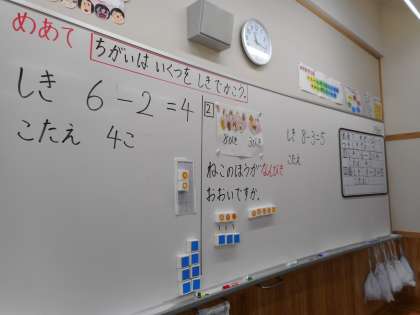 めあて
ちがいは いくつを しきでかこう。
しき 6-2=4
こたえ 4こ
2
8ひき 3びき
しき 8-3=5
こたえ
ねこのほうが なんびき
おおいですか。